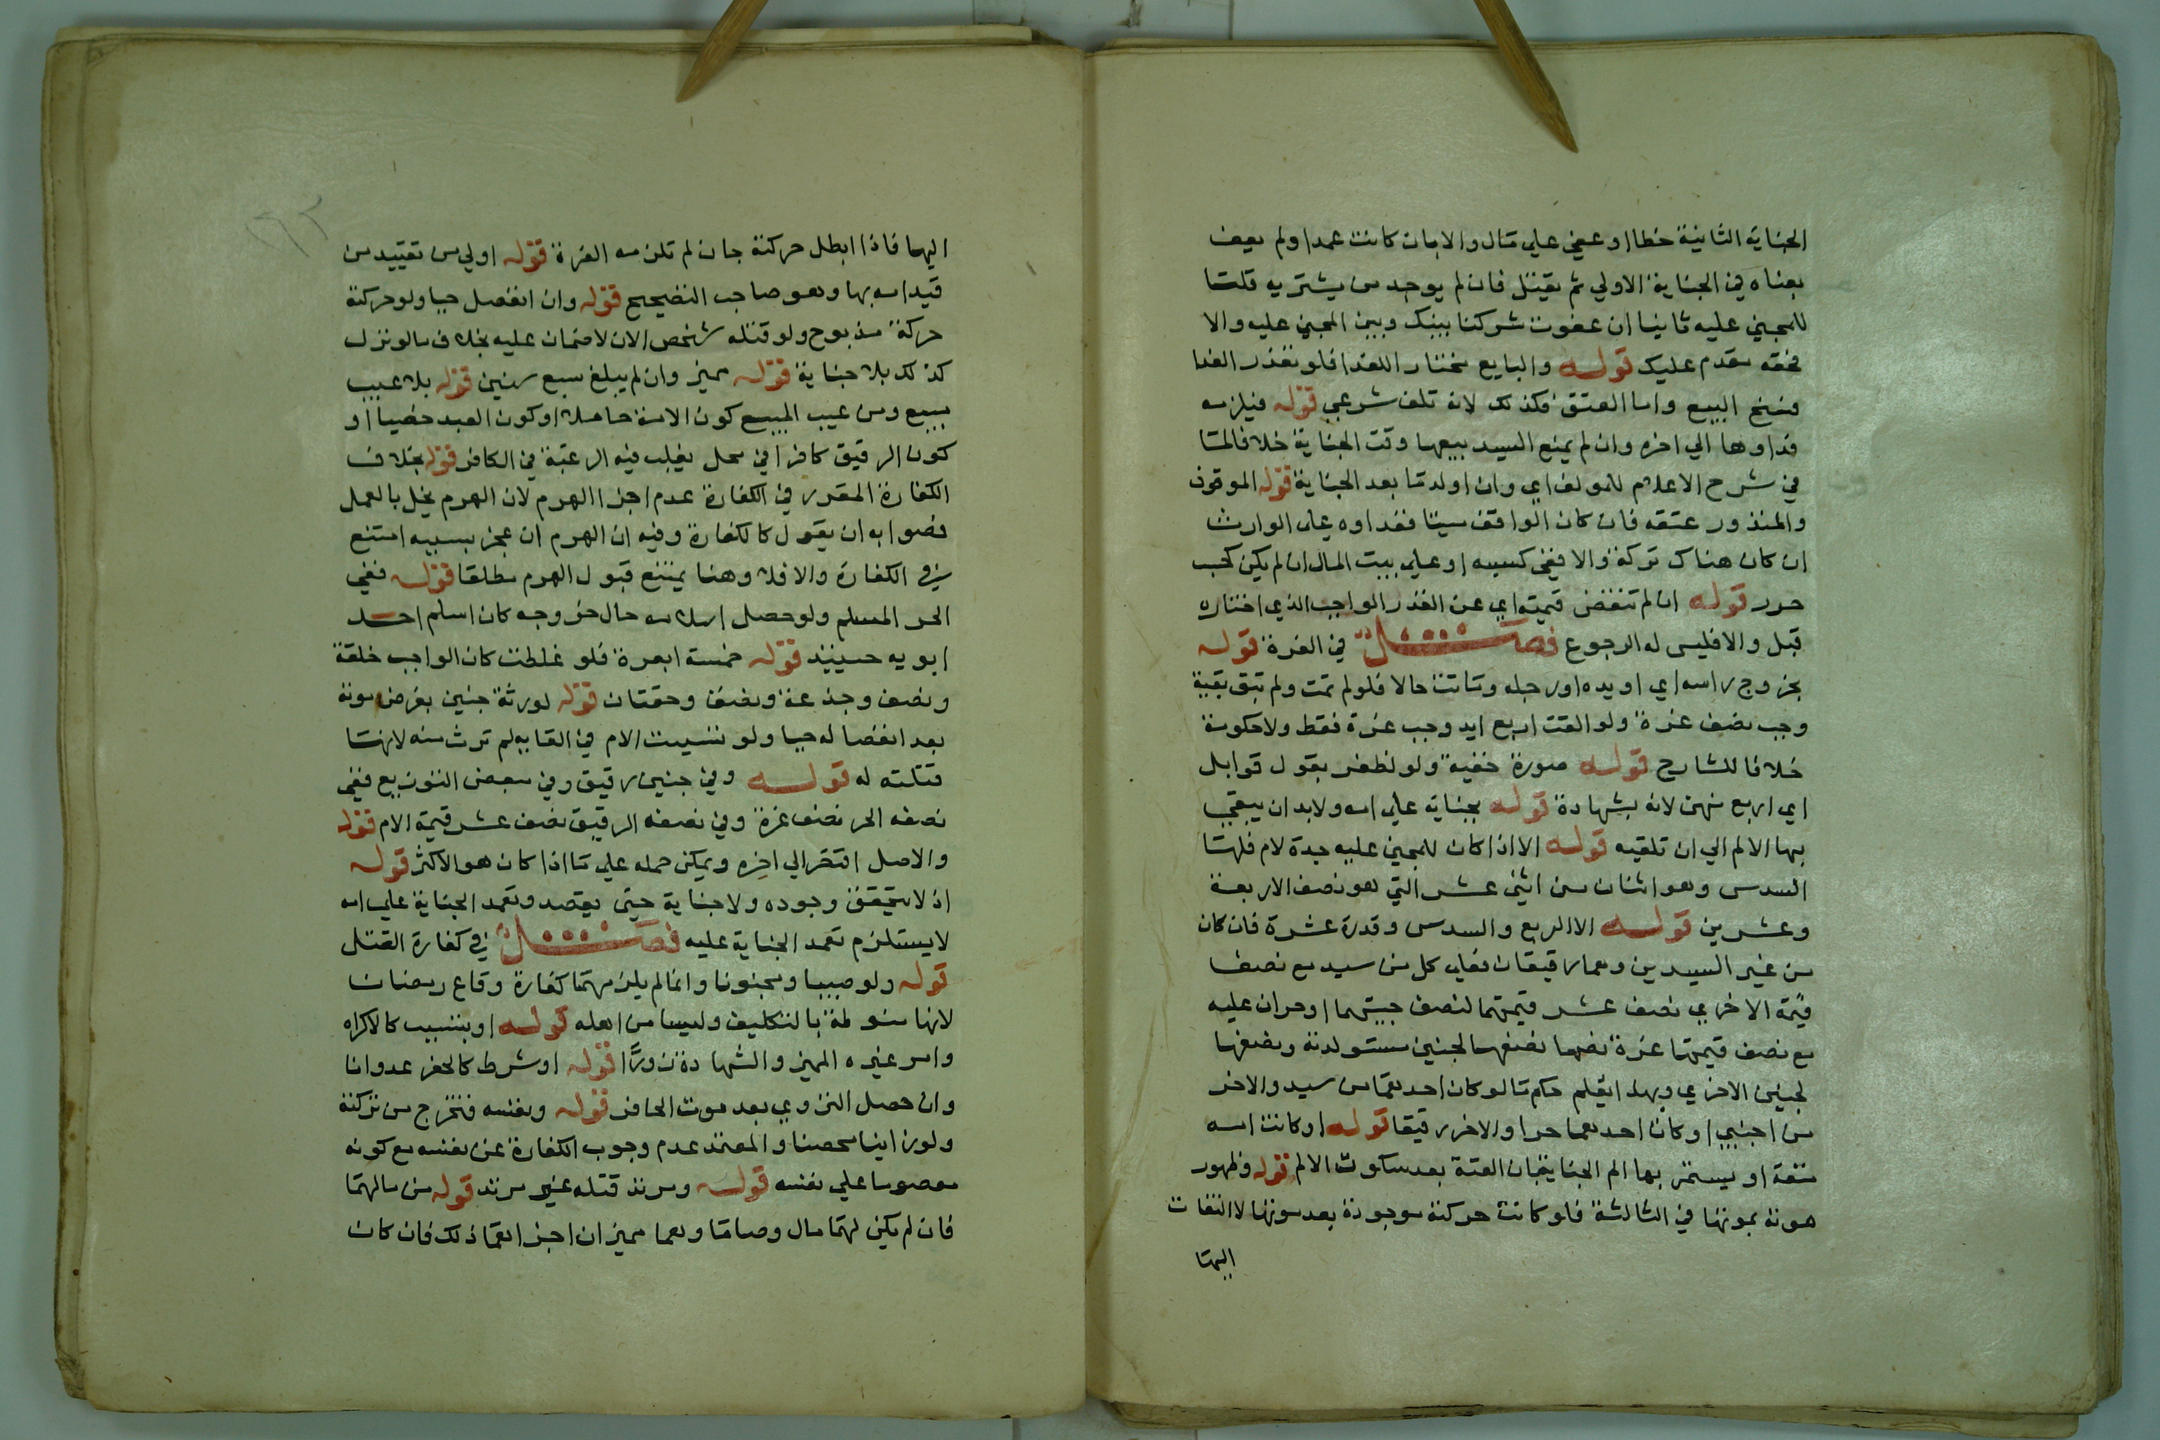 الجناية الثانية خطا او عفي علي مال والا بان كانت عمدا ولم يعف
بعناه في الجناية الاولي ثم يقتل فان لم يوجد من يشتريه قلنا
للمجني عليه ثانيا ان عفوت شركنا بينك وبين المجني عليه والا
فحقه مقدم عليك قوله والبايع مختار للفدا فلو تعذر الفدا
فسخ البيع واما العتق فكذلك لانه تلف شرعي قوله فيلزمه
فداوها الي اخره وان لم يمنع السيد بيعها وقت الجناية خلافا لما
في شرح الاعلام للمولف اي وان اولدها بعد الجناية قوله الموقوف
والمنذور عتقه فان كان الواقف ميتا ففداوه علي الوارث
ان كان هناك تركة والا ففي كسبه او علي بيت المال ان لم يكن كسب
حرر قوله ان لم تنقص قيمته اي عن القدر الواجب الذي اختاره
قبل والا فليس له الرجوع فصل في الغرة قوله
بخروج راسه اي او يده او رجله وماتت حالا فلو لم تمت ولم تبق بقية
وجب نصف غرة ولو القت اربع ايد وجب غرة فقط ولا حكومة
خلافا للشارح قوله صورة خفية ولو لظفر بقول قوابل
اي اربع منهن لانه بشهادة قوله بجناية علي امه ولابد ان يبقي
بها الالم الي ان تلقيه قوله الا اذا كان للمجني عليه جدة لام فلها
السدس وهو اثنان من اثني عشر التي هو نصف الاربعة
وعشرين قوله الا الربع والسدس وقدره عشرة فان كان
من غير السيدين وهما رقيقان فعلي كل من سيد مع نصف
قيمة الاخري نصف عشر قيمتهما لنصف جنينهما او حران عليه
مع نصف قيمتها غرة نصفها لجنين مستولدته ونصفها
لجنين الاخري وبهذا يعلم حكم ما لو كان احدهما من سيد والاخر
من اجنبي او كان احدهما حرا والاخر رقيقا قوله او كانت امه
منفة او يستمر بها الم الجناية بان القته بعد سكوت الالم قوله وظهور
موته بموتها في الثالثة فلو كانت حركته موجودة بعد موتها لا التفات
اليها
اليها فاذا ابطل حركته جان لم تلزمه الغرة قوله اولي من تقييد من
قيد امه بها وهو صاحب التصحيح قوله وان انفصل حيا ولو حركته
حركة مذبوح ولو قتله شخص الان لا ضمان عليه بخلاف ما لو نزل
كذلك بلا جناية قوله مميز وان لم يبلغ سبع سنين قوله بلا عيب
مبيع ومن عيب المبيع كون الامة حاملا او كون العبد خصيا او
كون الرقيق كافرا في محل يغلب فيه الرغبة في الكافر قوله بخلاف
الكفارة المقرر في الكفارة عدم اجزا الهرم لان الهرم يخل بالعمل
فصوابه ان يقول كالكفارة وفيه ان الهرم ان عجز بسببه امتنع
في الكفارة والا فلا وهنا يمتنع قبول الهرم مطلقا قوله ففي
الحر المسلم ولو حصل اسلامه حال خروجه كان اسلم احد
ابويه حينيذ قوله خمسة ابعرة فلو غلظت كان الواجب خلفة
ونصف وجذعة ونصف وحقتان قوله لورثة جنين بفرض موته
بعد انفصاله حيا ولو تسببت الام في القايه لم ترث منه لانها
قتلته له قوله وفي جنين رقيق وفي مبعض التوزيع ففي
نصفه الحر نصف غرة وفي نصفه الرقيق نصف عشر قيمة الام قوله
والاصل اقتصر الي اخره ويمكن حمله علي ما اذا كان هو الاكثر قوله
اذ لا يتحقق وجوده ولا جناية حتي يقصد وتعمد الجناية علي امه
لا يستلزم تعمد الجناية عليه فصل في كفارة القتل
قوله ولو صبيا ومجنونا وانما لم يلزمهما كفارة وقاع رمضان
لانها منوطة بالتكليف وليسا من اهله قوله او بتسبب كالاكراه
وامر غيره المميز والشهادة زورًا قوله او شرط كالحفر عدوانا
وان حصل التردي بعد موت الحافر قوله ونفسه فتخرج من تركته
ولو زانيا محصنا والمعتمد عدم وجوب الكفارة عن نفسه مع كونه
معصوما علي نفسه قوله ومرتد قتله غير مرتد قوله من مالهما
فان لم يكن لهما مال وصاما وهما مميزان اجزاهما ذلك فان كان